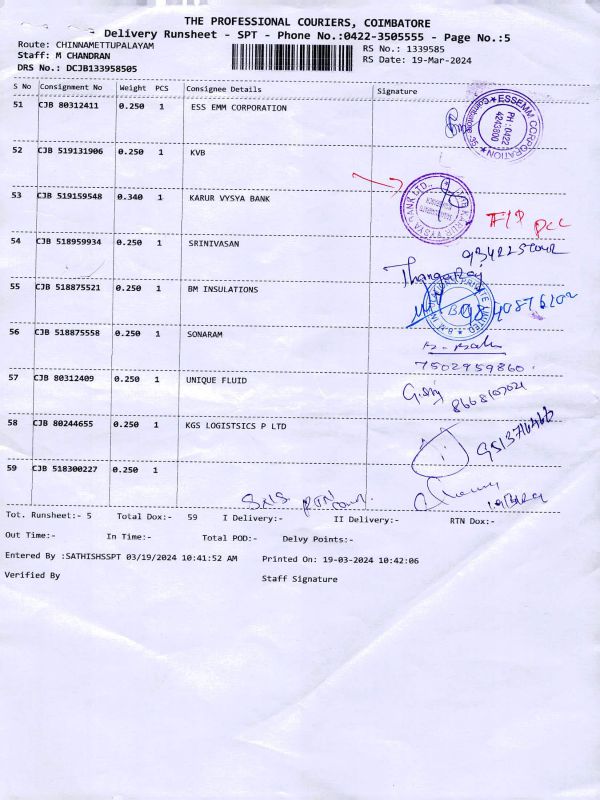 THE PROFESSIONAL COURIERS, COIMBATORE
Delivery Runsheet - SPT - Phone No.:0422-3505555 - Page No.:5
Route: CHINNAMETTUPALAYAM
Staff: M CHANDRAN
DRS No.: DCJB133958505
RS No.: 1339585
RS Date: 19-Mar-2024
S No Consignment No Weight PCS Consignee Details Signature
51 CJB 80312411 0.250 1 ESS EMM CORPORATION
ESSEMM CORPORATION
PH : 0422
4243800
52 CJB 519131906 0.250 1 KVB
53 CJB 519159548 0.340 1 KARUR VYSYA BANK
KARUR VYSYA BANK LTD.,
54 CJB 518959934 0.250 1 SRINIVASAN
Thangaraj
55 CJB 518875521 0.250 1 BM INSULATIONS
56 CJB 518875558 0.250 1 SONARAM
7502959860.
57 CJB 80312409 0.250 1 UNIQUE FLUID
58 CJB 80244655 0.250 1 KGS LOGISTSICS P LTD
59 CJB 518300227 0.250 1
RTN
Tot. Runsheet:- 5 Total Dox:- 59 I Delivery:- II Delivery:- RTN Dox:-
Out Time:- In Time:- Total POD:- Delvy Points:-
Entered By :SATHISHSSPT 03/19/2024 10:41:52 AM Printed On: 19-03-2024 10:42:06
Verified By Staff Signature